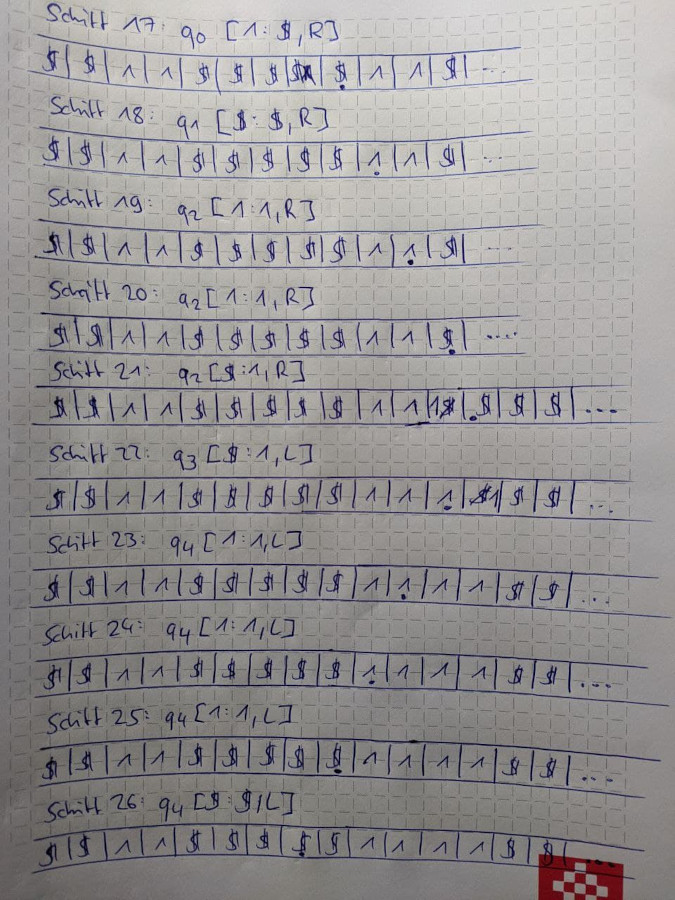 Schritt 17: q0 [1: $, R]
$ | $ | 1 | 1 | $ | $ | $ | $ | $ | 1 | 1 | $ | ...
Schritt 18: q1 [$: $, R]
$ | $ | 1 | 1 | $ | $ | $ | $ | $ | 1 | 1 | $ | ...
Schritt 19: q2 [1:1, R]
$ | $ | 1 | 1 | $ | $ | $ | $ | $ | 1 | 1 | $ | ...
Schritt 20: q2 [1:1, R]
$ | $ | 1 | 1 | $ | $ | $ | $ | $ | 1 | 1 | $ | ....
Schritt 21: q2 [$:1, R]
$ | $ | 1 | 1 | $ | $ | $ | $ | $ | 1 | 1 | 1 | $ | $ | $ | ...
Schritt 22: q3 [$:1, L]
$ | $ | 1 | 1 | $ | $ | $ | $ | $ | 1 | 1 | 1 | 1 | $ | $ | ...
Schritt 23: q4 [1:1, L]
$ | $ | 1 | 1 | $ | $ | $ | $ | $ | 1 | 1 | 1 | 1 | $ | $ | ...
Schritt 24: q4 [1:1, L]
$ | $ | 1 | 1 | $ | $ | $ | $ | $ | 1 | 1 | 1 | 1 | $ | $ | ...
Schritt 25: q4 [1:1, L]
$ | $ | 1 | 1 | $ | $ | $ | $ | $ | 1 | 1 | 1 | 1 | $ | $ | ...
Schritt 26: q4 [$: $, L]
$ | $ | 1 | 1 | $ | $ | $ | $ | $ | 1 | 1 | 1 | 1 | $ | $ | ...